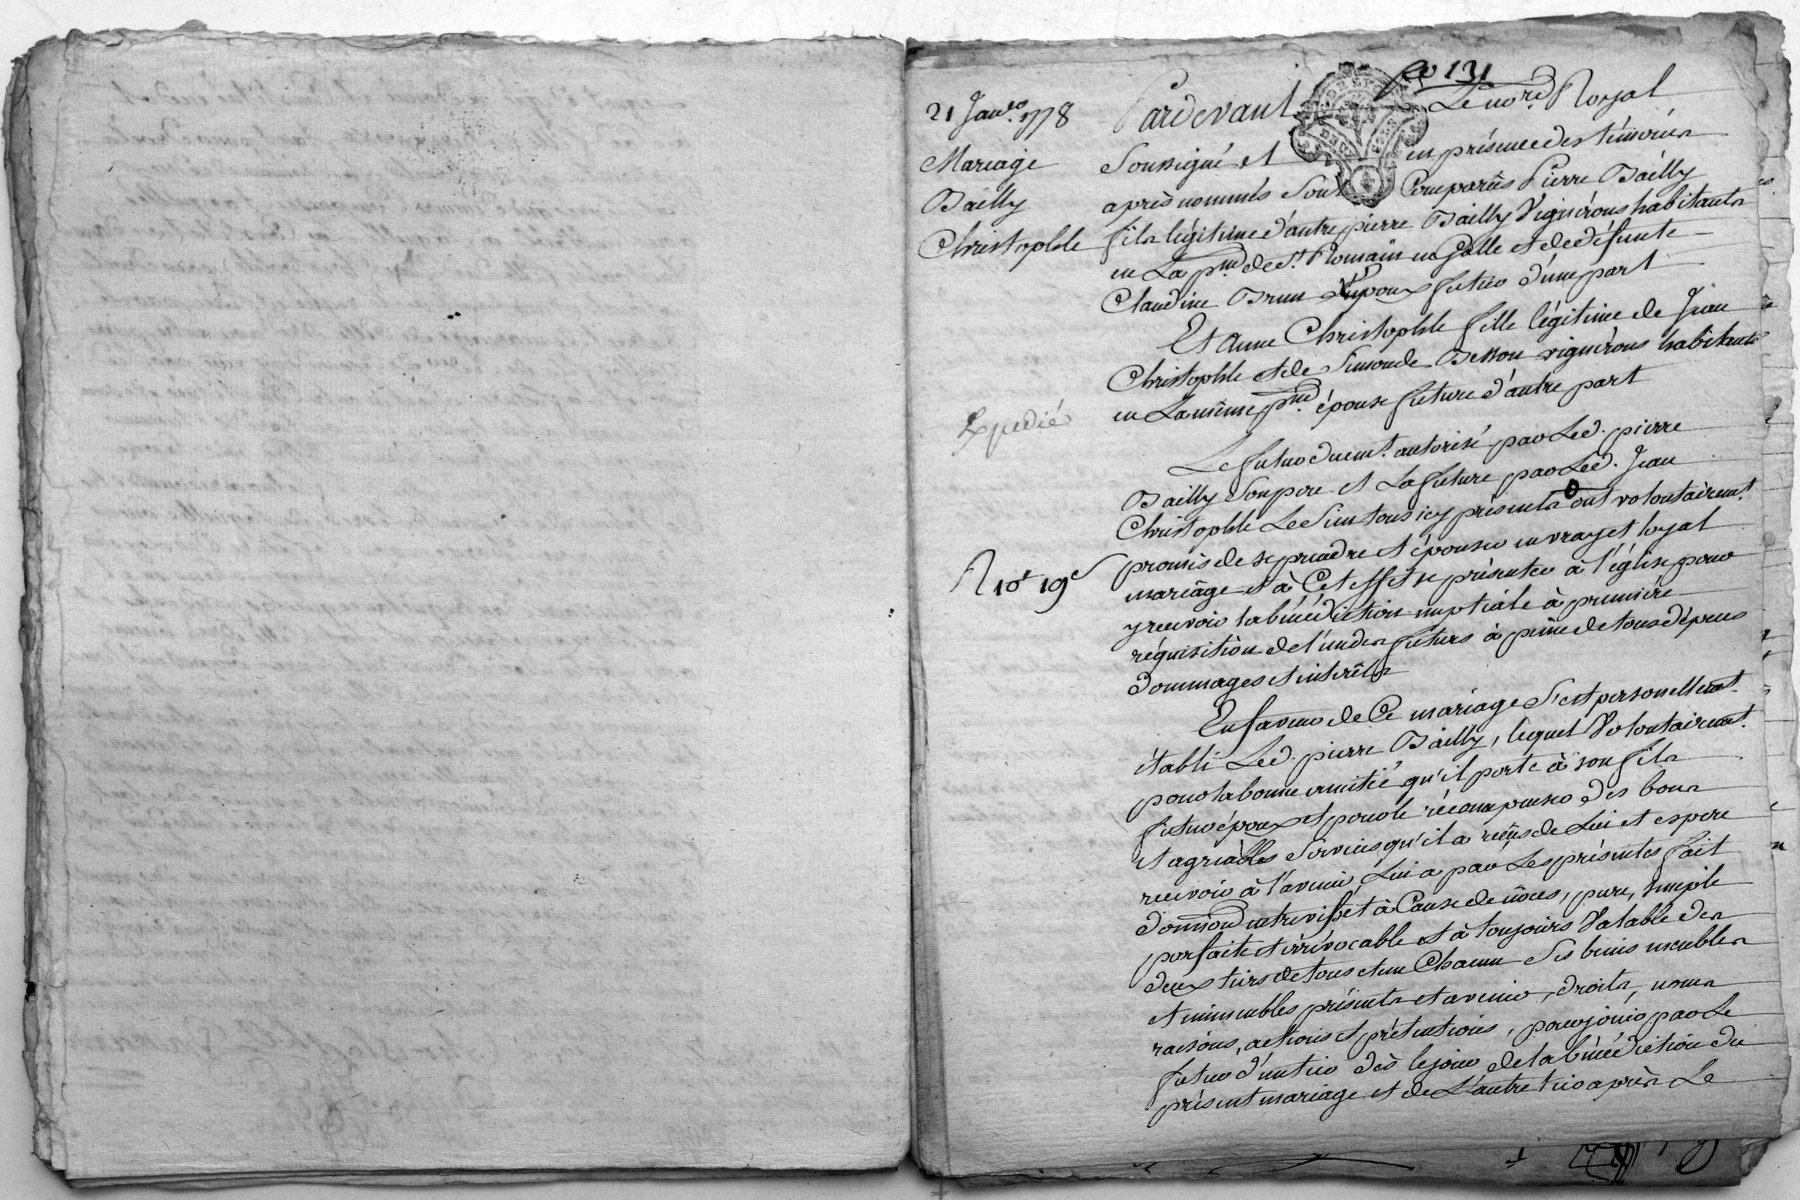 fo 131
21 Janer. 1778
Mariage
Bailly
Christophle
Expedié
R 10# 19s
Pardevant Le nore. Royal
Soussigné et en présence des témoins
après nommés Sont Comparûs Pierre Bailly
fils légitime d'autre pierre Bailly Vignérons habitants
en La psse de St. Romain en Galle et de défunte
Claudine Brun époux futur d'une part
Et Anne Christophle fille légitime de Jean
Christophle et de Simonde Besson vignérons habitants
en La même psse. épouse future d'autre part
Le futur duemt. autorisé par Led. pierre
Bailly Son pere et La future par Led. Jean
Christophle Le Sien tous icy présents ont volontairemt.
promis de se prendre et épouser en vray et loyal
mariage et à Cet effet se présenter à l'église pour
y recevoir la bénédiction nuptiale à premiére
réquisition de l'un des futurs à peine de tous dépens
dommages et intérêts
En faveur de Ce mariage S'est personellemt.
établi Led. pierre Bailly, lequel Volontairemt.
pour la bonne amitié qu'il porte à son fils
futur époux et pour le récompenser des bons
et agréables Services qu'il a reçûs de Lui et espere
recevoir à l'avenir, Lui a par Les présentes fait
donnaôn entrevifs et à Cause de nôces, pure, simple
parfaite et irrévocable et à toujours Valable des
deux tiers de tous et un Chacun Ses biens meubles
et immeubles présents et avenir, droits, noms
raisons, actions et prétentions, pour jouir par Le
futur d'un tier dès le jour de la bénédiction du
présent mariage et de L'autre tier après Le